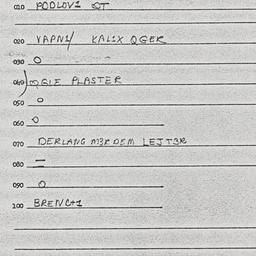 010 PODLOV1 QT
020 VAPN1/ KAL1X OGER
030 O
040 OGIE PLASTER
050 O
060 O
070 DERLANG M3R DEM LEJT3R
080 =
090 O
100 BRENC+1